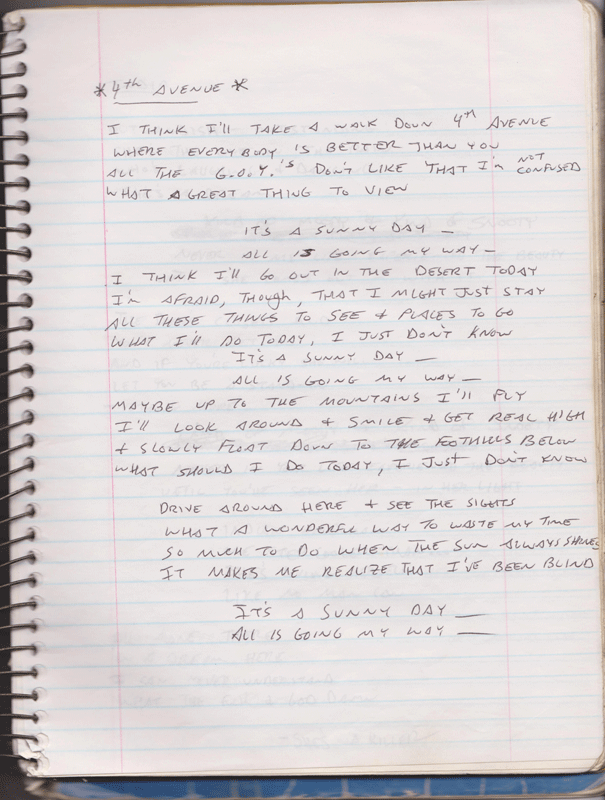 * 4th AVENUE *
I THINK I'LL TAKE A WALK DOWN 4TH AVENUE
WHERE EVERYBODY IS BETTER THAN YOU
ALL THE G.O.Y.'S DON'T LIKE THAT I'M NOT CONFUSED
WHAT A GREAT THING TO VIEW
IT'S A SUNNY DAY —
ALL IS GOING MY WAY —
I THINK I'LL GO OUT IN THE DESERT TODAY
I'M AFRAID, THOUGH, THAT I MIGHT JUST STAY
ALL THESE THINGS TO SEE + PLACES TO GO
WHAT I'LL DO TODAY, I JUST DON'T KNOW
IT'S A SUNNY DAY —
ALL IS GOING MY WAY —
MAYBE UP TO THE MOUNTAINS I'LL FLY
I'LL LOOK AROUND + SMILE + GET REAL HIGH
+ SLOWLY FLOAT DOWN TO THE FOOTHILLS BELOW
WHAT SHOULD I DO TODAY, I JUST DON'T KNOW
DRIVE AROUND HERE + SEE THE SIGHTS
WHAT A WONDERFUL WAY TO WASTE MY TIME
SO MUCH TO DO WHEN THE SUN ALWAYS SHINES
IT MAKES ME REALIZE THAT I'VE BEEN BLIND
IT'S A SUNNY DAY —
ALL IS GOING MY WAY —